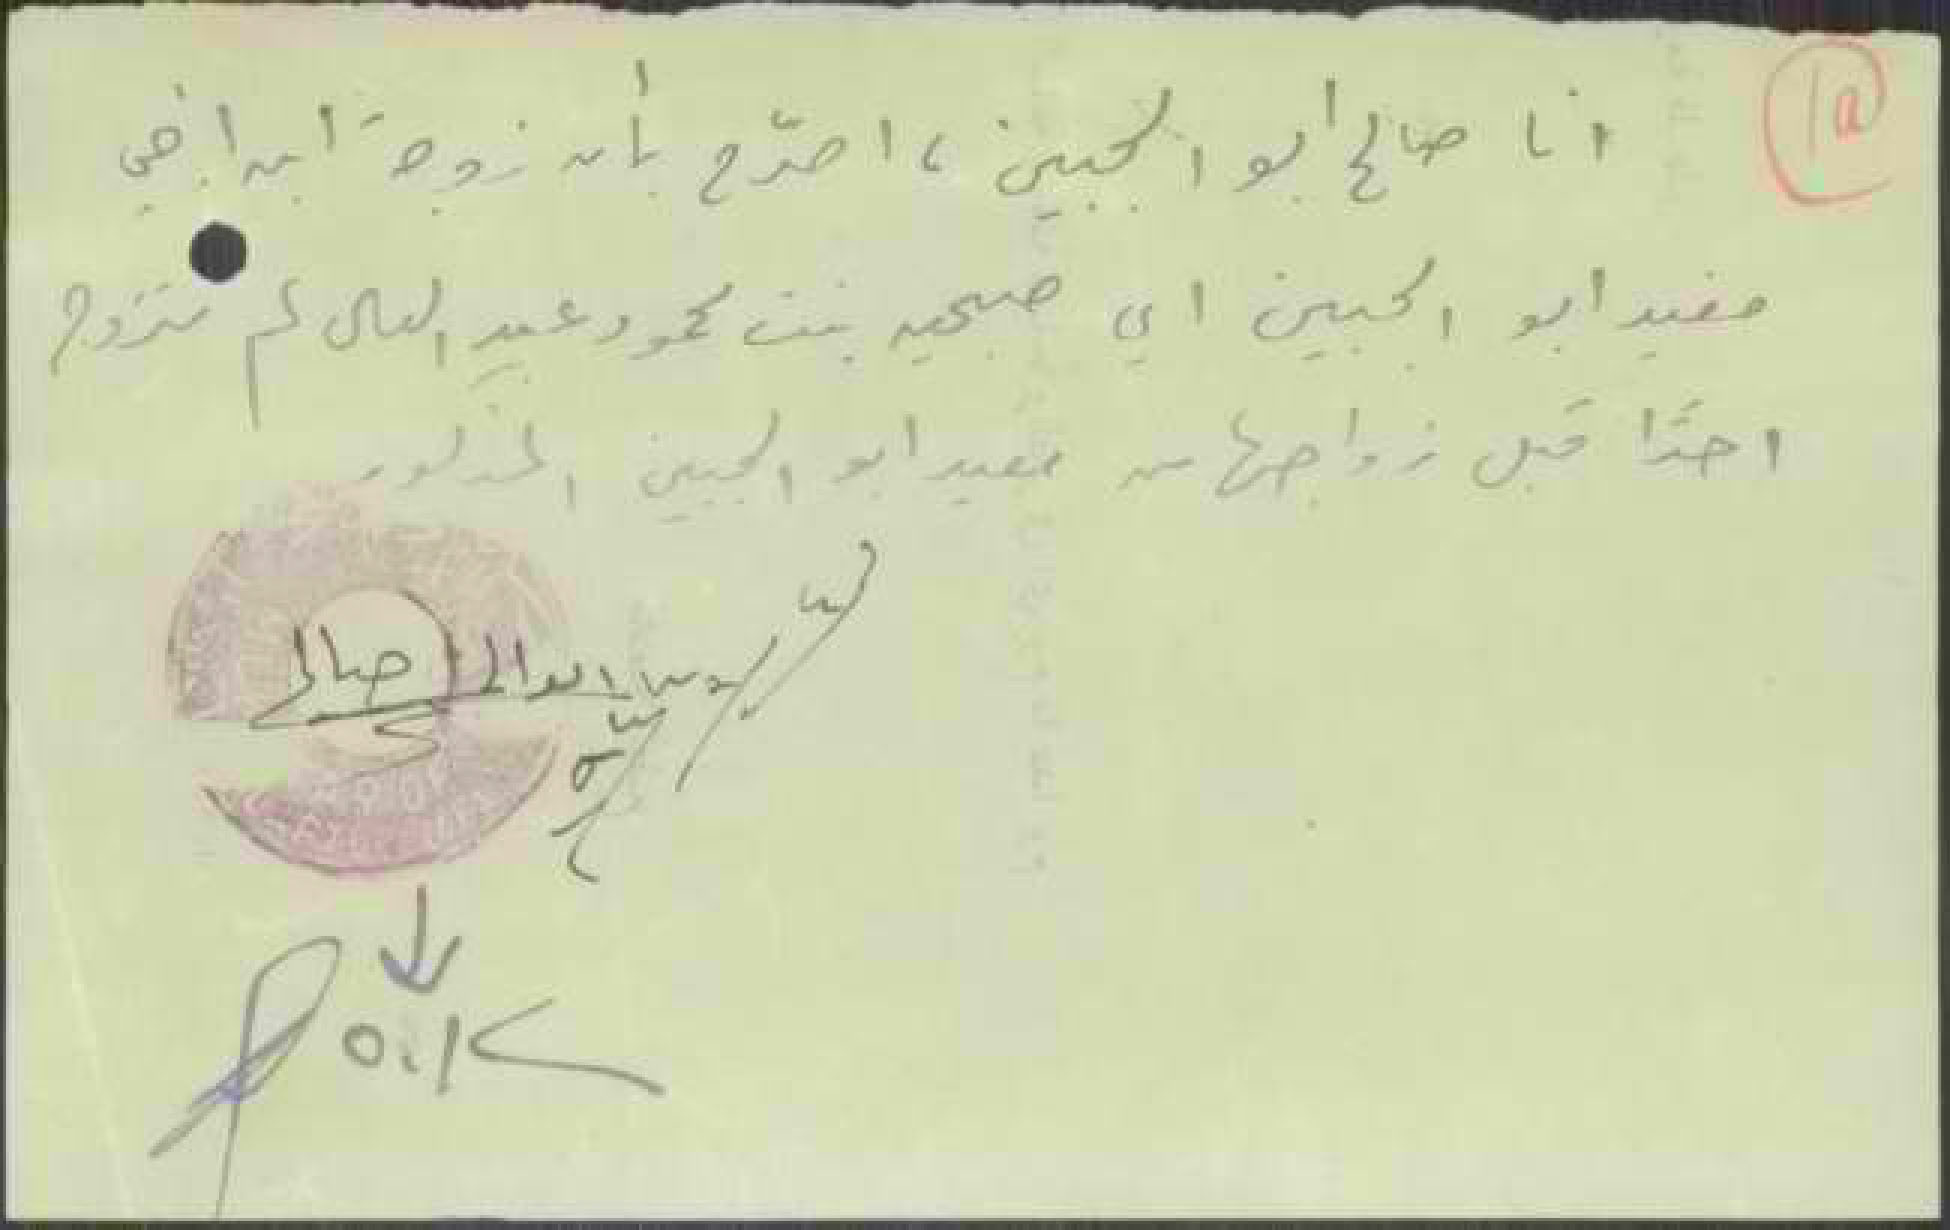 1a
انا صالح ابو الجبين ، اصرّح بأن زوجة ابن اخي
مفيد ابو الجبين اي صبحيه بنت محمود عبد العال لم تتزوج
احدًا قبل زواجها من مفيد ابو الجبين المذكور
صالح
O.K